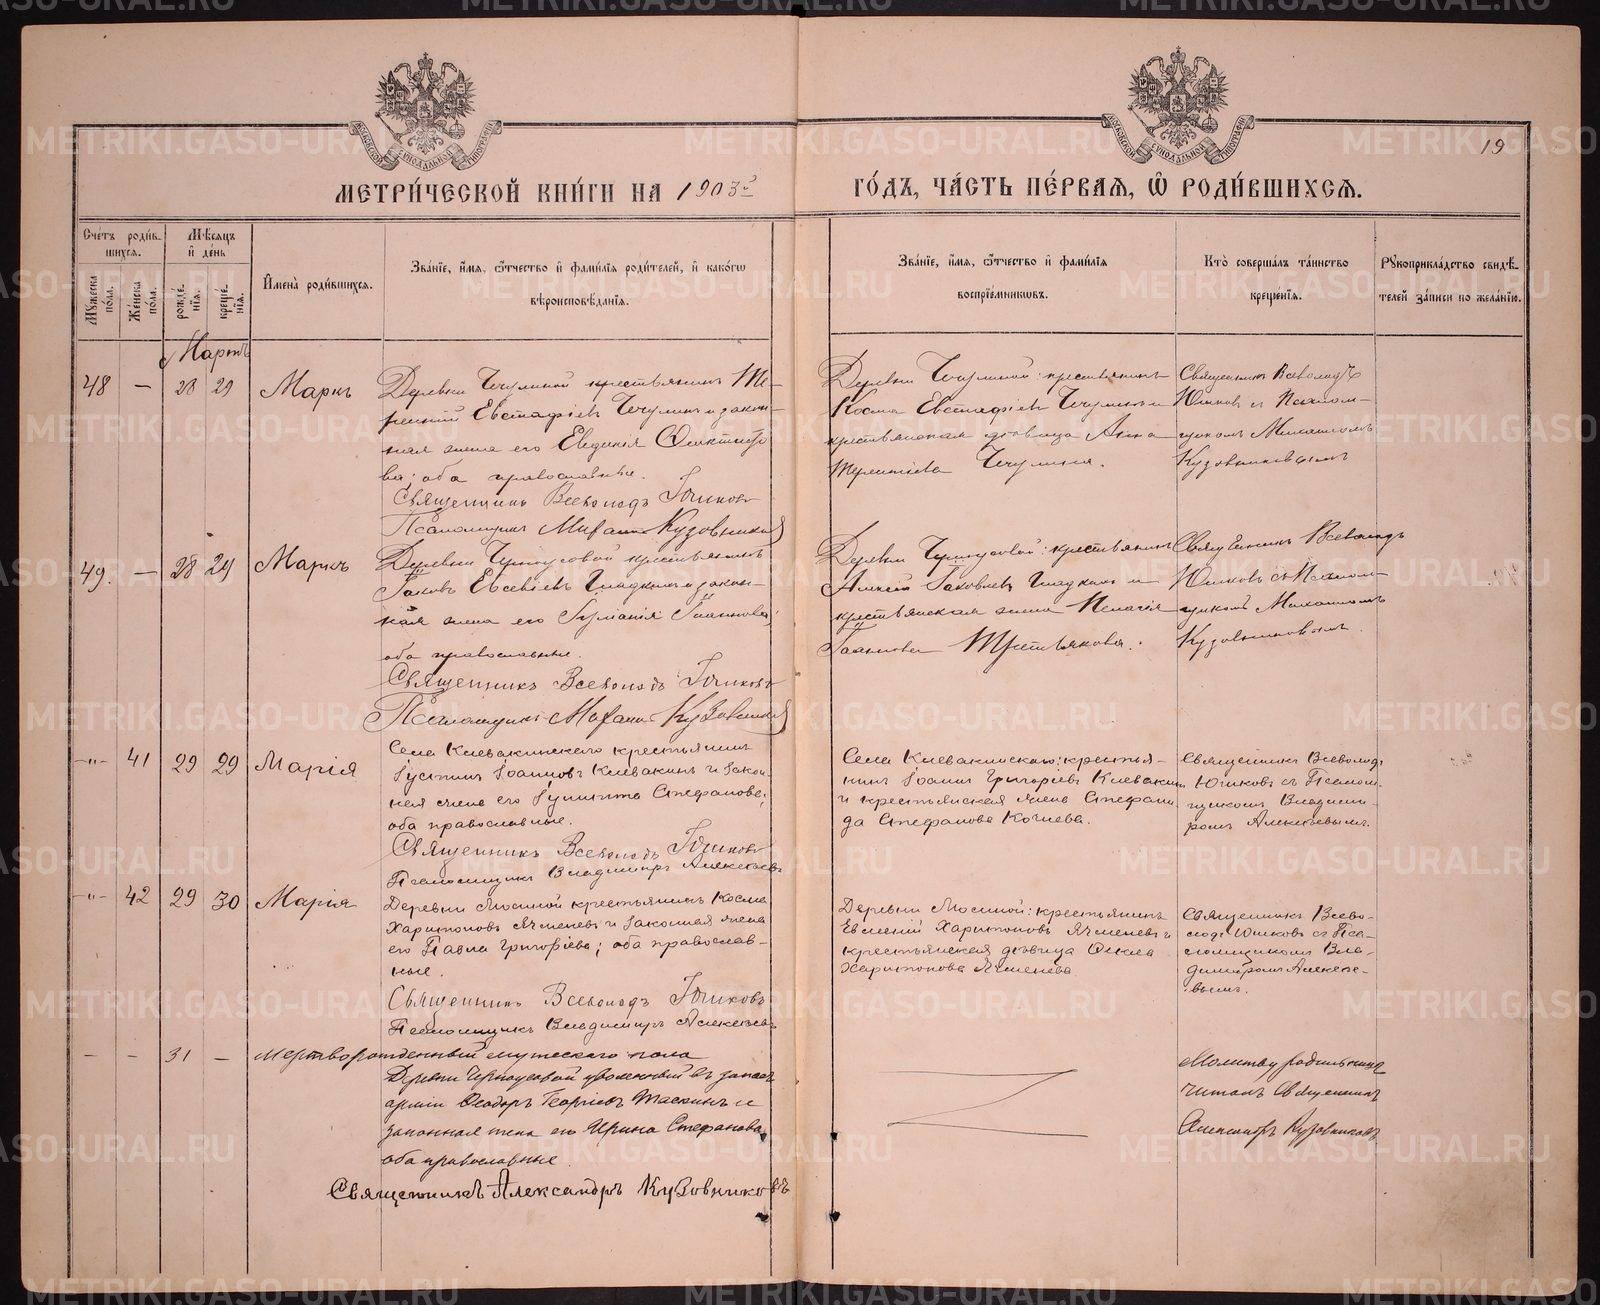 19
МЕТРИ́ЧЕСКОЙ КНИ́ГИ НА 1903й
ГО́ДЪ, ЧА́СТЬ ПЕ́РВАЯ, Ѽ РОДИ́ВШИХСѦ.
Сче́тъ роди́в-
шихсѧ.
Мѣ́сѧцъ
и҆ де́нь
Мꙋжеска пола.
Же́нска по́ла.
рожде́-
нїѧ.
креще́-
нїѧ.
И҆мена̀ роди́вшихсѧ.
Зва́нїе, и҆́мѧ, ѻ҆́тчество и҆ фами́лїѧ роди́телей, и҆ како́гѡ
вѣроисповѣ́данїѧ.
Зва́нїе, и҆́мѧ, ѻ҆́тчество и҆ фами́лїѧ
воспрїе́мникѡвъ.
Кто̀ соверша́лъ та́инство
креще́нїѧ.
Рꙋкоприкла́дство свидѣ́-
телей за́писи по жела́нїю.
Мартъ
48 — 28 29 Маркъ
Деревни Чечулиной крестьянинъ Те-
рентій Евстафіевъ Чечулинъ и закон-
ная жена его Евдокія
ва; оба православные.
Священникъ Всеволодъ Юшковъ
Псаломщикъ Кузовниковъ
Деревни Чечулиной: крестьянинъ
Косма Евстафіевъ Чечулинъ и
крестьянская дѣвица Анна
Терентіева Чечулина.
Священникъ Всеволодъ
Юшковъ съ Псалом-
щикомъ
Кузовниковымъ
49. — 28 29 Маркъ
Деревни Черноусовой крестьянинъ
Іаковъ Евсевіевъ Гладкихъ и закон-
ная жена его Іуліанія Іоаннова;
оба православные.
Священникъ Всеволодъ Юшковъ
Псаломщикъ Кузовниковъ
Деревни Черноусовой: крестьянинъ
Алексій Іаковлевъ Гладкихъ и
крестьянская жена Пелагія
Іоаннова Третьякова.
Священникъ Всеволодъ
Юшковъ съ Псалом-
щикомъ
Кузовниковымъ.
-"- 41 29 29 Марія
Села Клевакинскаго крестьянинъ
Іустинъ Іоанновъ Клевакинъ и закон-
ная жена его Іулитта Стефанова;
оба православные.
Священникъ Всеволодъ Юшковъ
Псаломщикъ Владиміръ Алексѣевъ
Села Клевакинскаго: крестья-
нинъ Іоаннъ Григоріевъ Клевакинъ
и крестьянская жена Стефани-
да Стефанова Кочнева.
Священникъ Всеволодъ
Юшковъ съ Псалом-
щикомъ Владимі-
ромъ Алексѣевымъ.
-"- 42 29 30 Марія
Деревни Мосиной крестьянинъ Косма
Харитоновъ Ячменевъ и законная жена
его Павла Григоріева; оба православ-
ные.
Священникъ Всеволодъ Юшковъ
Псаломщикъ Владиміръ Алексѣевъ
Деревни Мосиной: крестьянинъ
Евгеній Харитоновъ Ячменевъ и
крестьянская дѣвица Ѳекла
Харитонова Ячменева
Священникъ Всево-
лодъ Юшковъ съ Пса-
ломщикомъ Вла-
диміромъ Алексѣе-
вымъ.
— — 31 — Мертворожденный мужескаго пола
Деревни Черноусовой уволенный въ запасъ
арміи Ѳеодоръ Георгіевъ Таскинъ и
законная жена его Ирина Стефанова,
оба православные.
Священникъ Александръ Кузовниковъ
Молитву родильницѣ
читалъ Священникъ
Александръ Кузовниковъ
METRIKI.GASO-URAL.RU